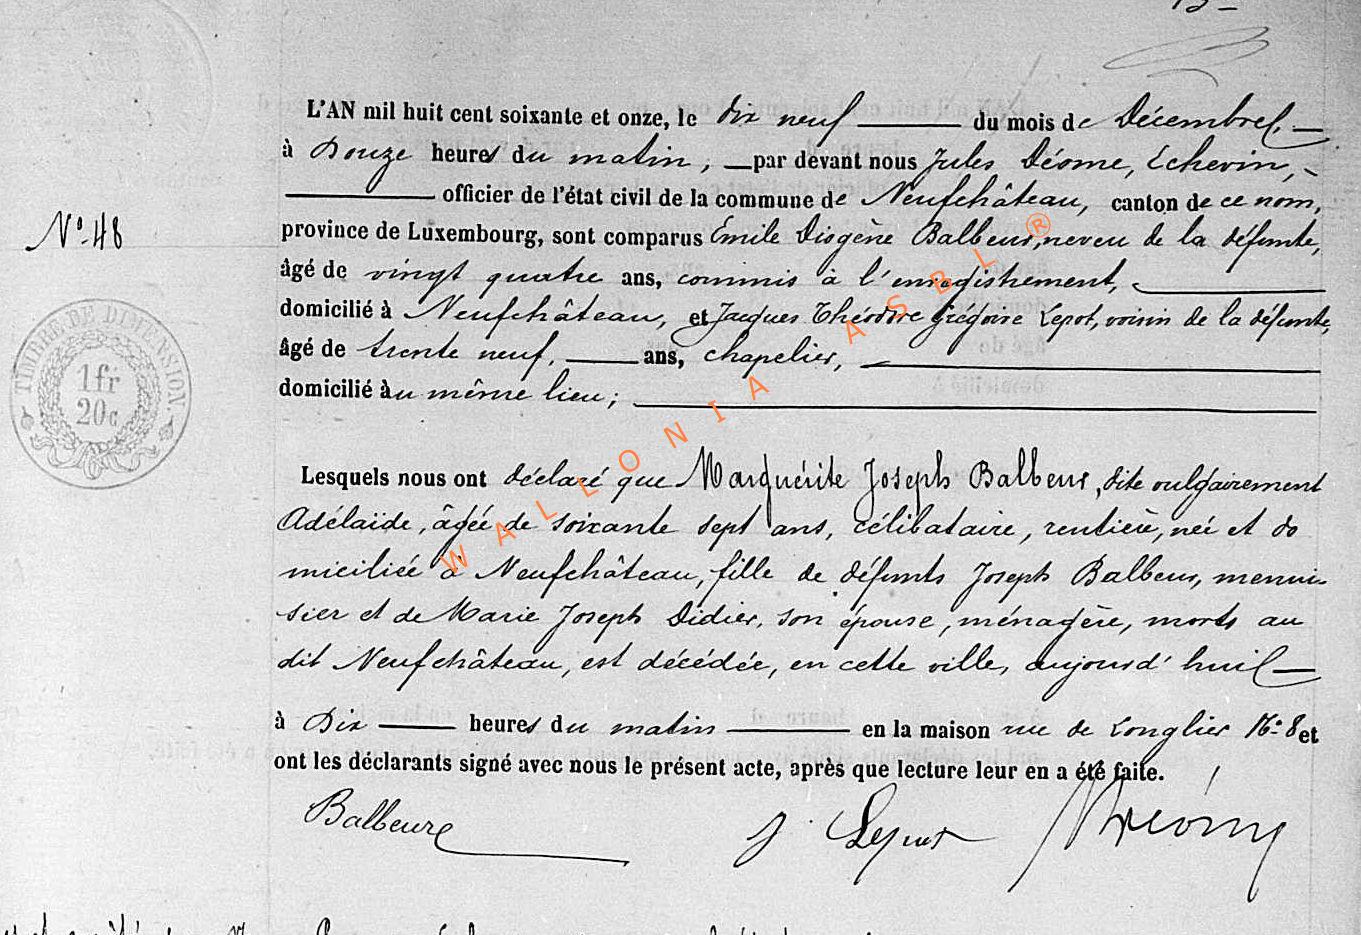 L'AN mil huit cent soixante et onze, le dix neuf du mois de Décembre,
à Douze heures du matin, par devant nous Jules Déome, Echevin,
officier de l'état civil de la commune de Neufchâteau, canton de ce nom,
province de Luxembourg, sont comparus Emile Diogène Balbeur, neveu de la défunte,
N° 48
âgé de vingt quatre ans, commis à l'enregistrement,
domicilié à Neufchâteau, et Jacques Théodore Grégoire Lepot, voisin de la défunte,
âgé de trente neuf, ans, chapelier,
domicilié àu même lieu;
TIMBRE DE DIMENSION.
1 fr
20 c
WALLONIA ASBL ®
Lesquels nous ont déclaré que Marguérite Joseph Balbeur, dite vulgairement
Adélaïde, âgée de soixante sept ans, célibataire, rentière, née et do
miciliée à Neufchâteau, fille de défunts Joseph Balbeur, menui-
sier et de Marie Joseph Didier, son épouse, ménagère, morts au
dit Neufchâteau, est décédée, en cette ville, aujourd'hui
à Dix heures du matin en la maison rue de Longlier N° 8 et
ont les déclarants signé avec nous le présent acte, après que lecture leur en a été faite.
Balbeur J. Lepot